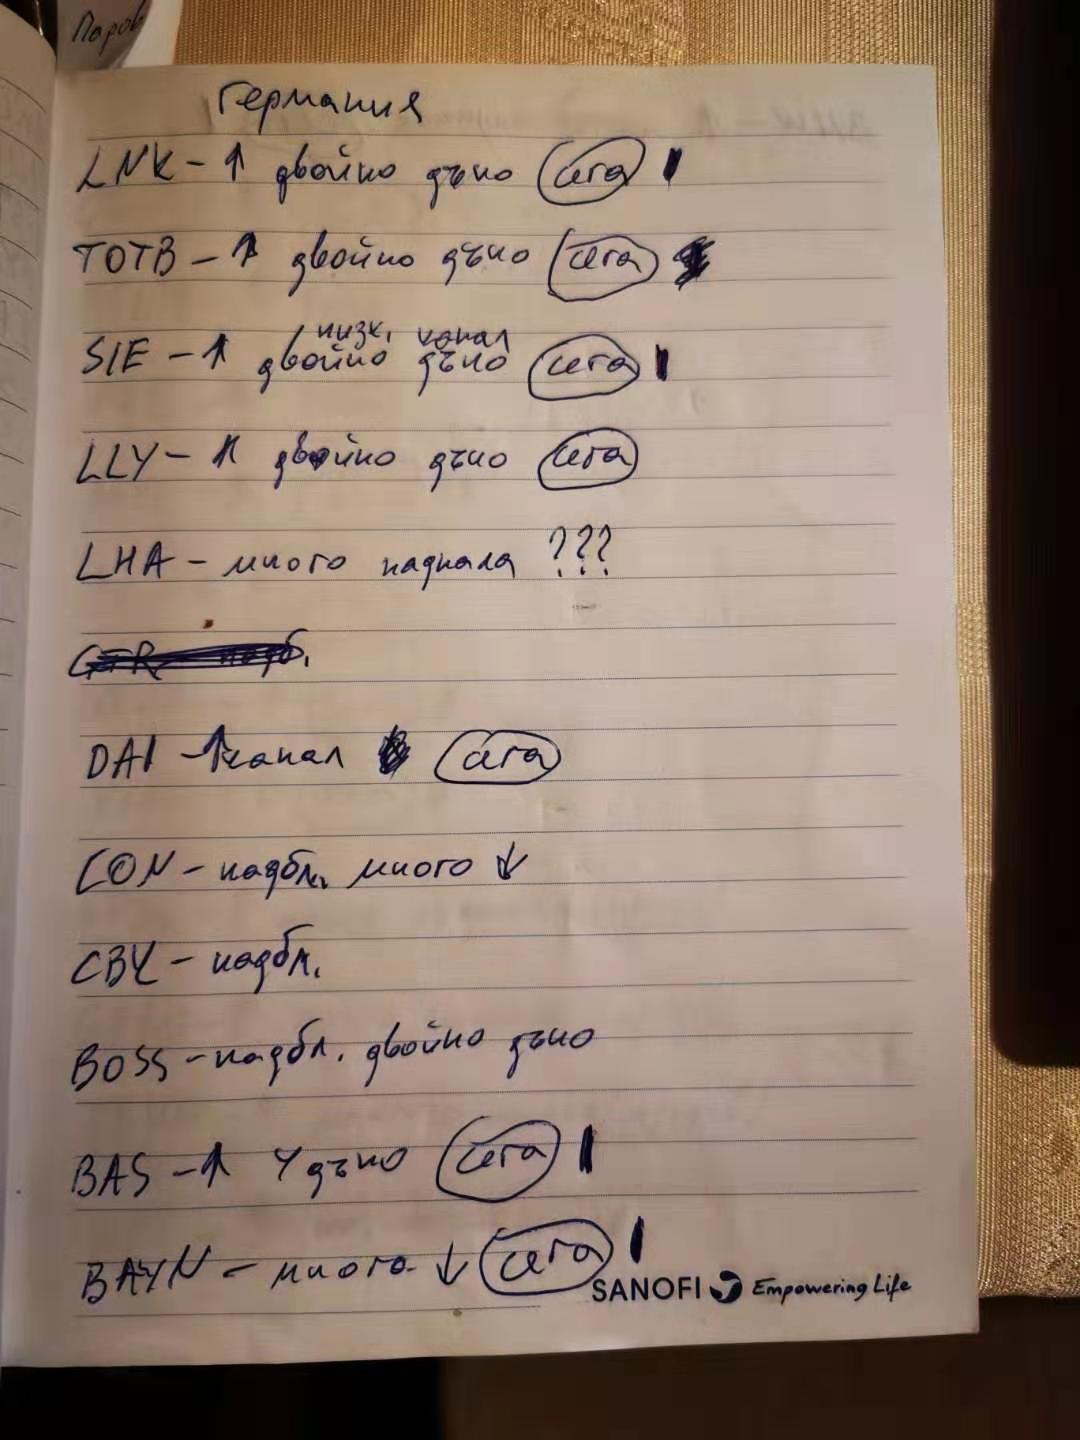 Паров
Германия
LNK - ↑ двойно дъно сега
TOTB - ↑ двойно дъно сега
низк. канал
SIE - ↑ двойно дъно сега
LLY - ↑ двойно дъно сега
LHA - много паднала ???
DAI - ↑ канал сега
CON - надбл. много ↓
CBK - надбл.
BOSS - надбл. двойно дъно
BAS - ↑ Y дъно сега
BAYN - много ↓ сега
SANOFI Empowering Life